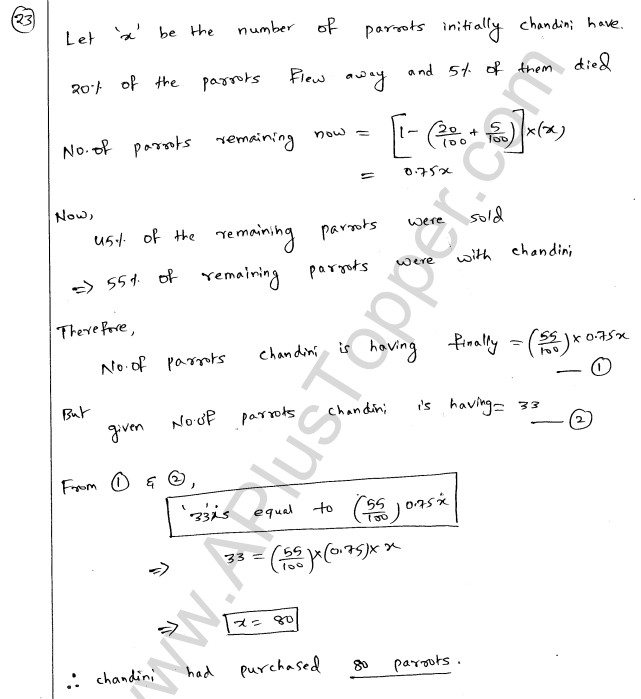 23
Let 'x' be the number of parrots initially chandini have.
20% of the parrots Flew away and 5% of them died
No. of parrots remaining now = [1 - (20/100 + 5/100)] × (x)
= 0.75x
Now,
45% of the remaining parrots were sold
=> 55% of remaining parrots were with chandini
Therefore,
No. of parrots chandini is having finally = (55/100) × 0.75x
— ①
But given No. of parrots chandini is having = 33 — ②
From ① & ②,
'33' is equal to (55/100) 0.75x
=> 33 = (55/100) × (0.75) × x
=> x = 80
∴ chandini had purchased 80 parrots.
www.APlusTopper.com